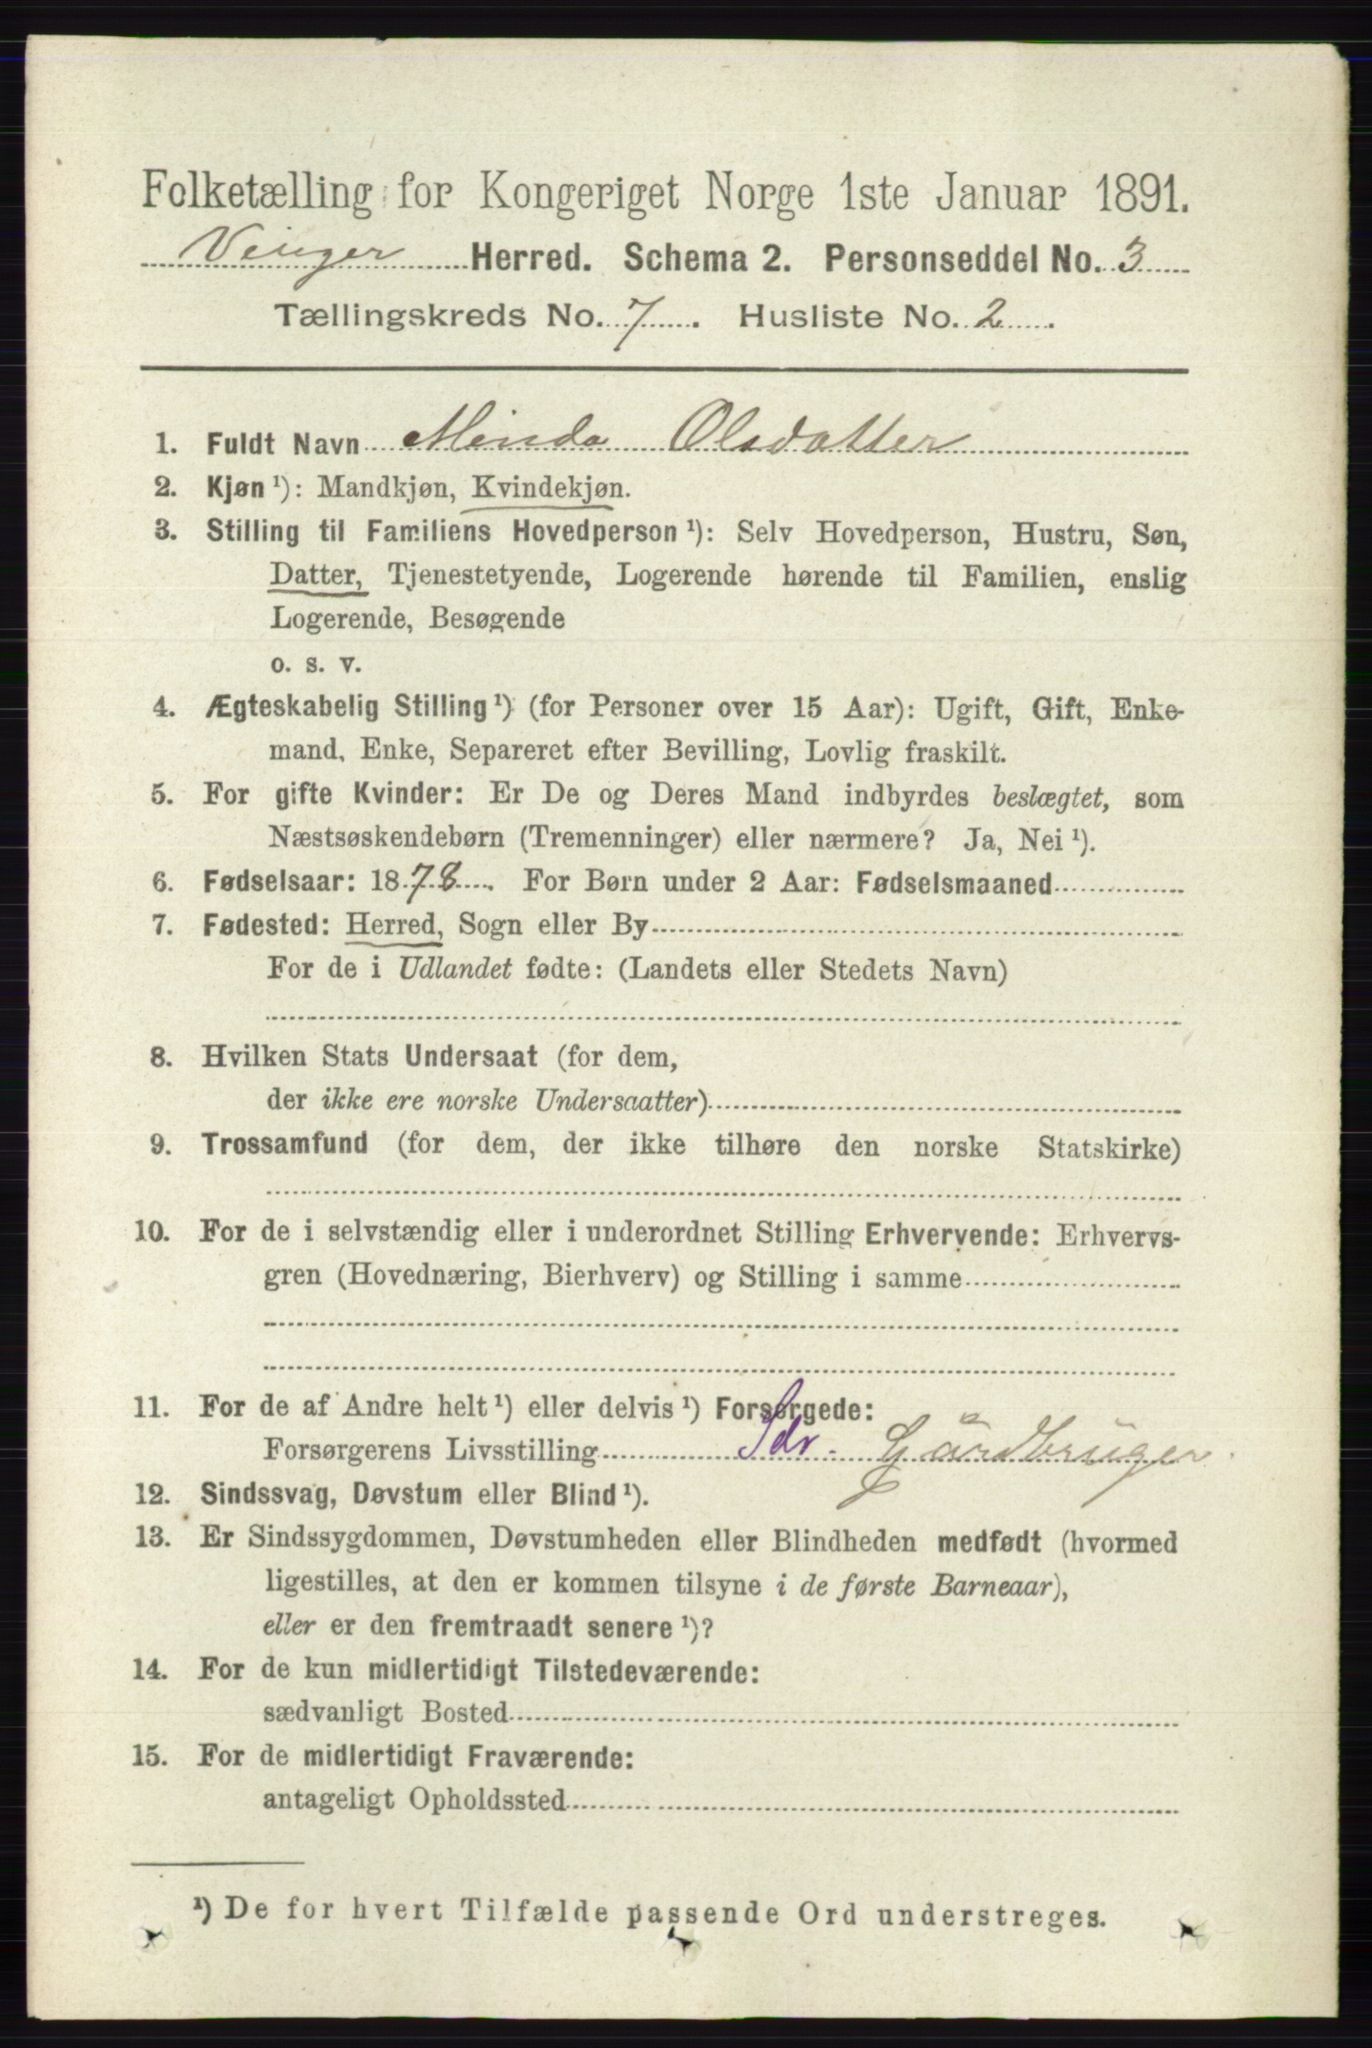 Folketælling for Kongeriget Norge 1ste Januar 1891.
Vinger Herred. Schema 2. Personseddel No. 3
Tællingskreds No. 7. Husliste No. 2.
1. Fuldt Navn Minda Olsdatter
2. Kjøn ¹): Mandkjøn, Kvindekjøn.
3. Stilling til Familiens Hovedperson ¹): Selv Hovedperson, Hustru, Søn,
Datter, Tjenestetyende, Logerende hørende til Familien, enslig
Logerende, Besøgende
o. s. v.
4. Ægteskabelig Stilling ¹) (for Personer over 15 Aar): Ugift, Gift, Enke-
mand, Enke, Separeret efter Bevilling, Lovlig fraskilt.
5. For gifte Kvinder: Er De og Deres Mand indbyrdes beslægtet, som
Næstsøskendebørn (Tremenninger) eller nærmere? Ja, Nei ¹).
6. Fødselsaar: 1878. For Børn under 2 Aar: Fødselsmaaned
7. Fødested: Herred, Sogn eller By
For de i Udlandet fødte: (Landets eller Stedets Navn)
8. Hvilken Stats Undersaat (for dem,
der ikke ere norske Undersaatter)
9. Trossamfund (for dem, der ikke tilhøre den norske Statskirke)
10. For de i selvstændig eller i underordnet Stilling Erhvervende: Erhvervs-
gren (Hovednæring, Bierhverv) og Stilling i samme
11. For de af Andre helt ¹) eller delvis ¹) Forsørgede:
Forsørgerens Livsstilling Sdr. Gårdbruger
12. Sindssvag, Døvstum eller Blind ¹).
13. Er Sindssygdommen, Døvstumheden eller Blindheden medfødt (hvormed
ligestilles, at den er kommen tilsyne i de første Barneaar),
eller er den fremtraadt senere ¹)?
14. For de kun midlertidigt Tilstedeværende:
sædvanligt Bosted
15. For de midlertidigt Fraværende:
antageligt Opholdssted
¹) De for hvert Tilfælde passende Ord understreges.